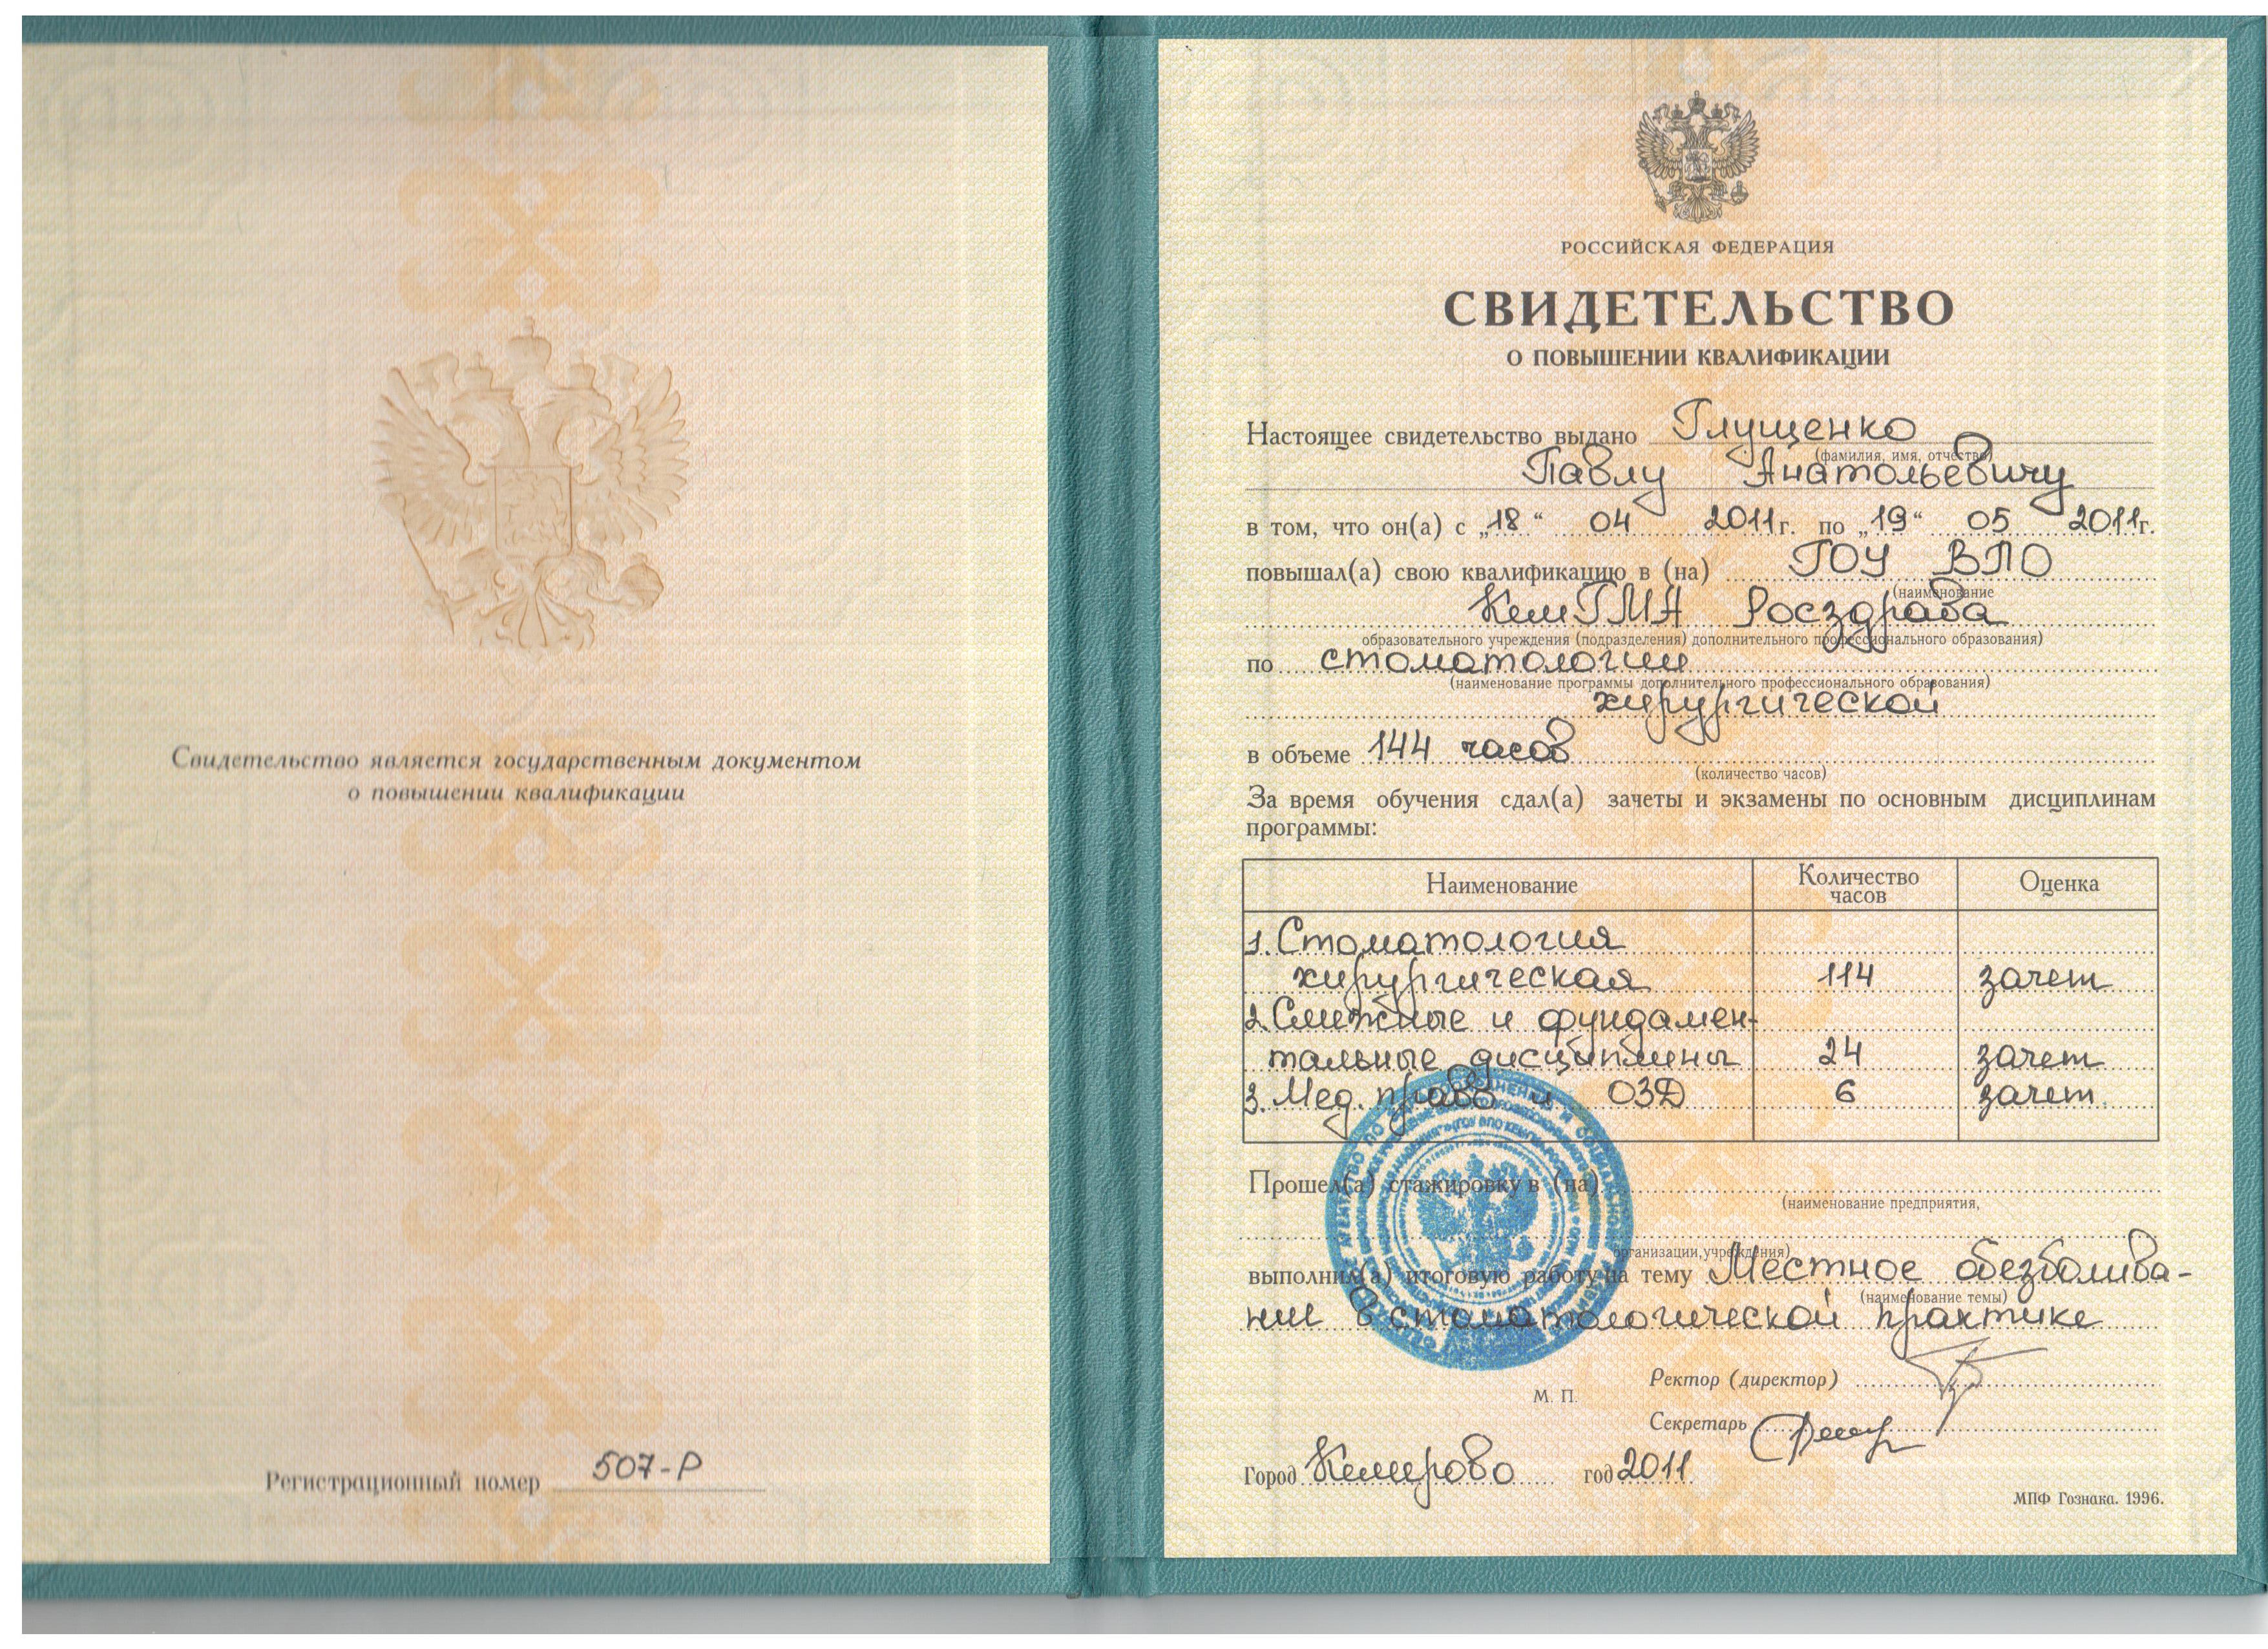 Свидетельство является государственным документом
о повышении квалификации
Регистрационный номер 507-Р
РОССИЙСКАЯ ФЕДЕРАЦИЯ
СВИДЕТЕЛЬСТВО
О ПОВЫШЕНИИ КВАЛИФИКАЦИИ
Настоящее свидетельство выдано Глущенко
(фамилия, имя, отчество)
Павлу Анатольевичу
в том, что он(а) с „18“ 04 2011г. по „19“ 05 2011г.
повышал(а) свою квалификацию в (на) ГОУ ВПО
(наименование
КемГМА Росздрава
образовательного учреждения (подразделения) дополнительного профессионального образования)
по стоматологии
(наименование программы дополнительного профессионального образования)
хирургической
в объеме 144 часов
(количество часов)
За время обучения сдал(а) зачеты и экзамены по основным дисциплинам
программы:
Наименование Количество часов Оценка
1. Стоматология
хирургическая 114 зачет
2. Смежные и фундамен-
тальные дисциплины 24 зачет
3. Мед. право и ОЗД 6 зачет
Прошел(а) стажировку в (на)
(наименование предприятия,
организации, учреждения)
выполнил(а) итоговую работу на тему Местное обезболива-
(наименование темы)
ние в стоматологической практике
Ректор (директор)
М. П.
Секретарь
Город Кемерово год 2011.
МПФ Гознака. 1996.